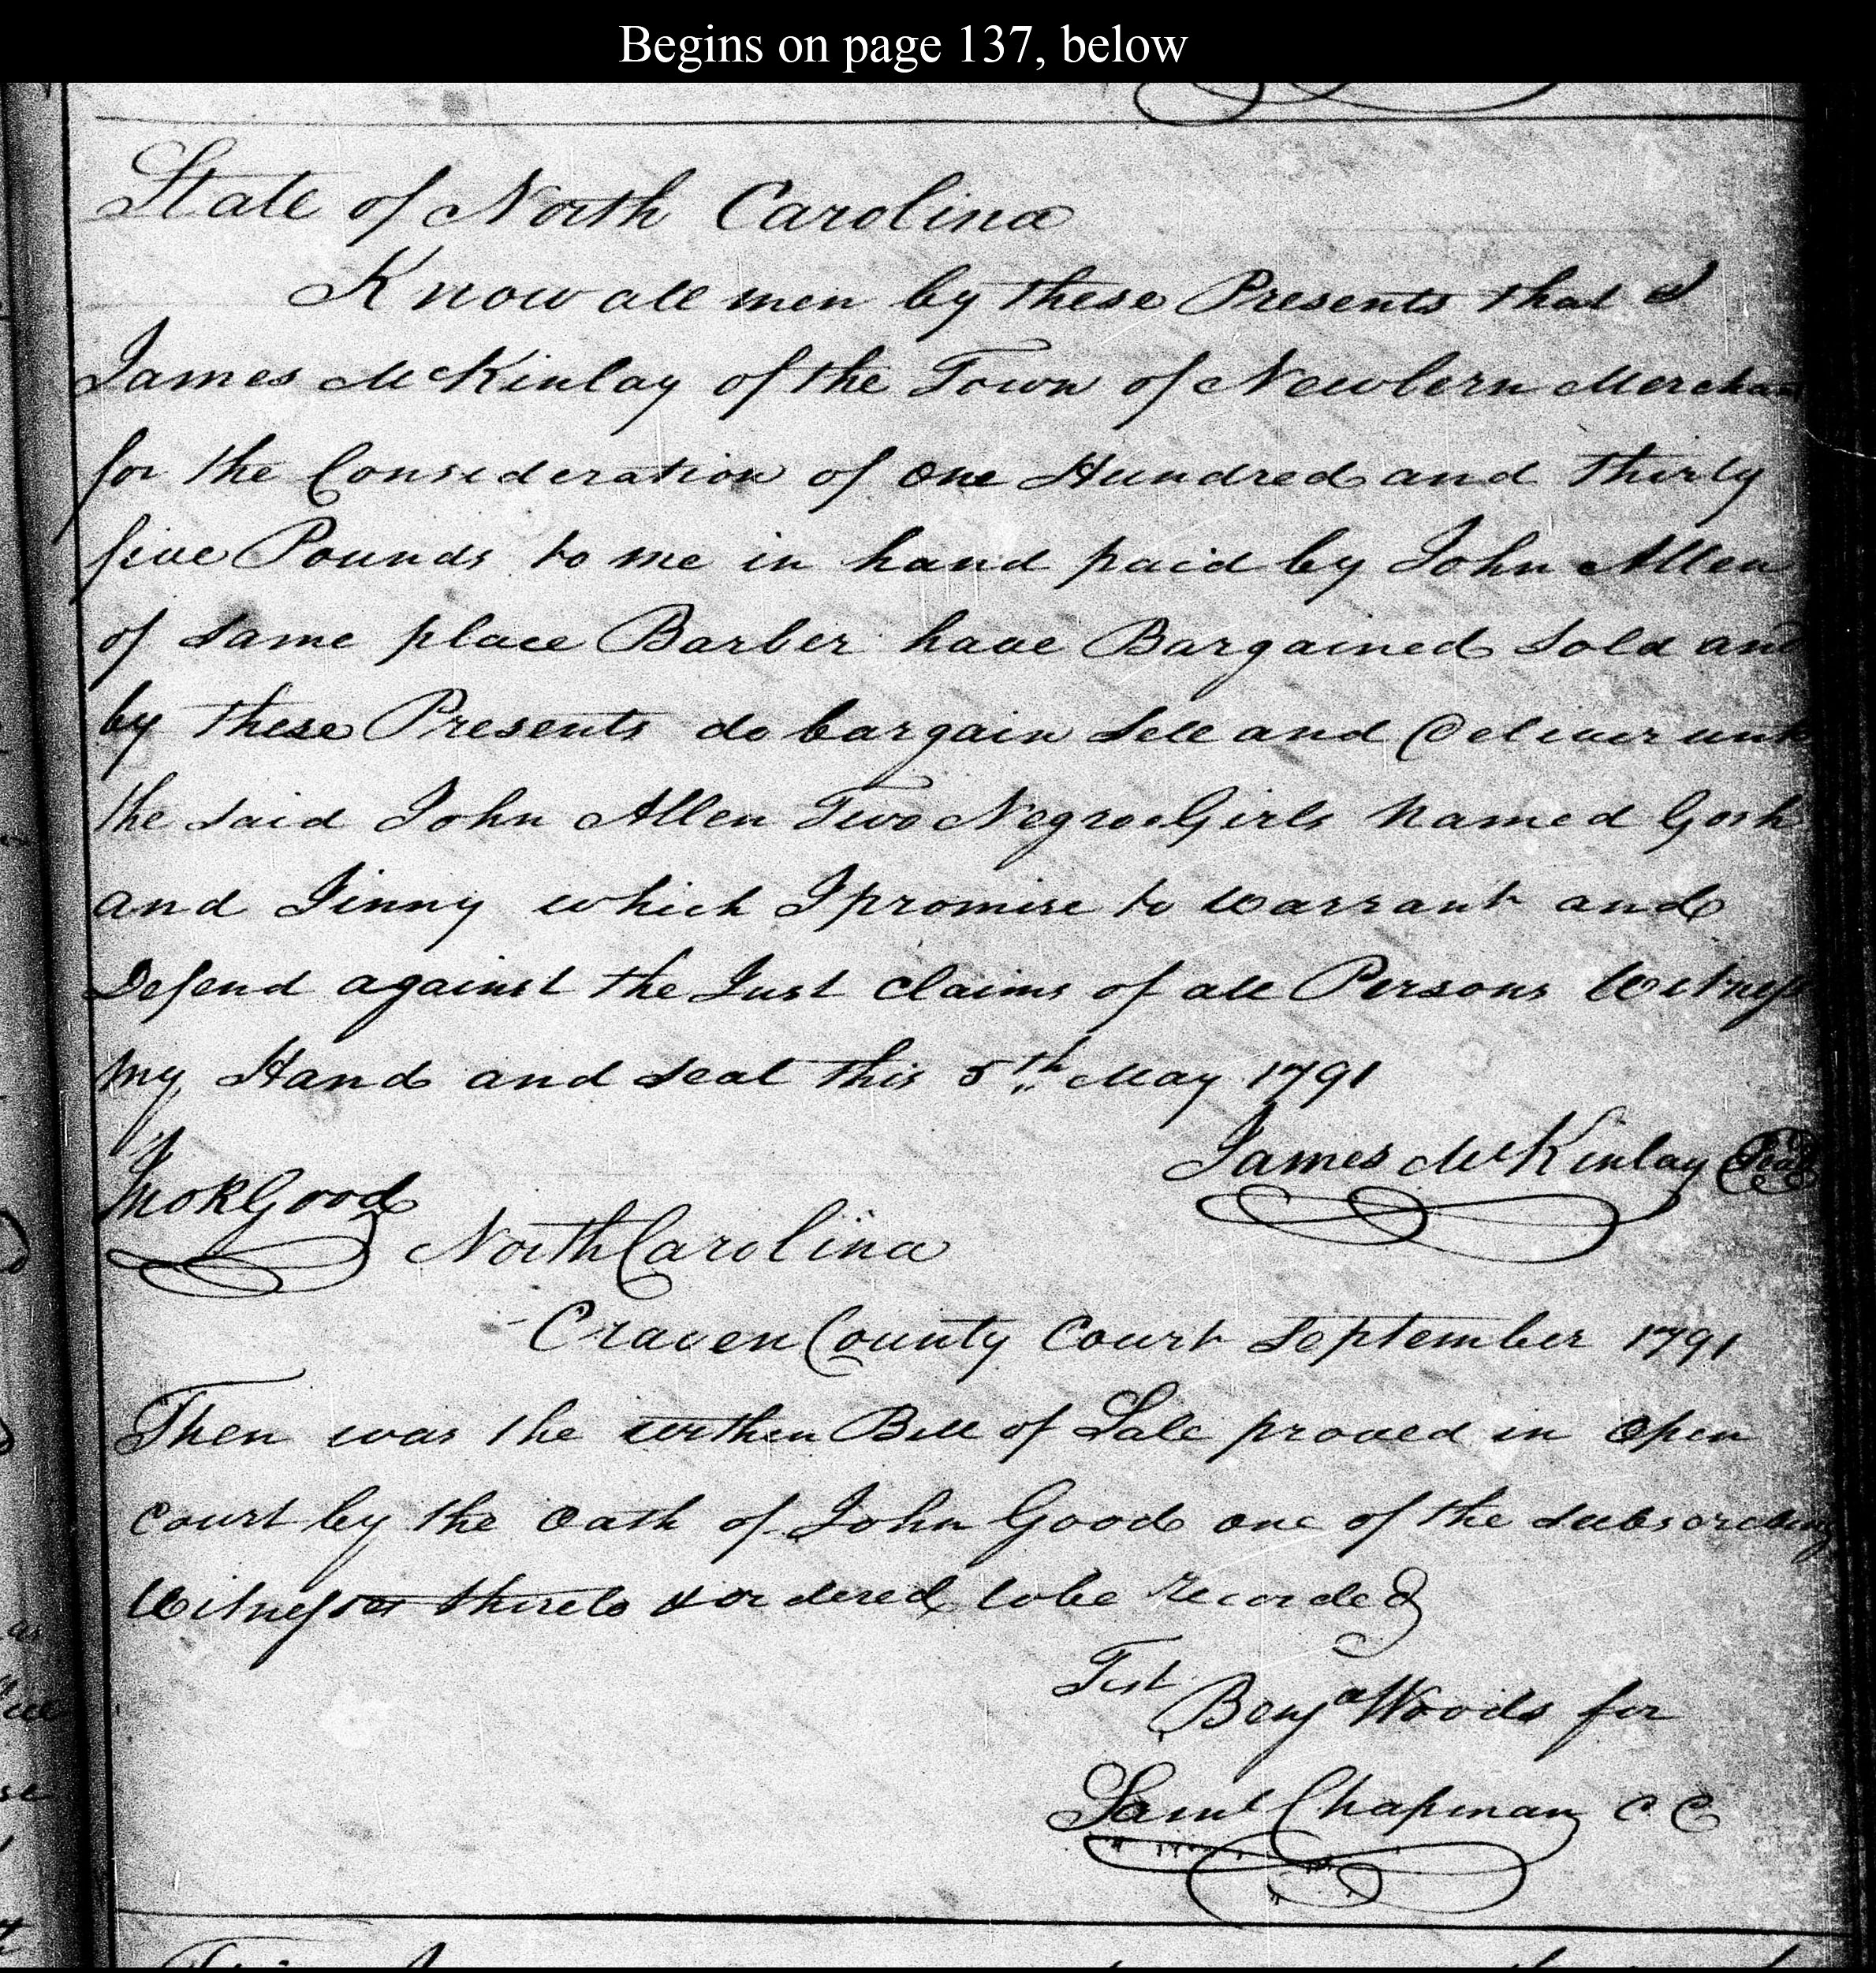 Begins on page 137, below
State of North Carolina
Know all men by these Presents that I
James McKinlay of the Town of Newbern Merchan
for the Consideration of one Hundred and thirty
five Pounds to me in hand paid by John Allen
of same place Barber have Bargained Sold and
by these Presents do bargain Sell and Deliver unto
the said John Allen Two Negroe Girls Named Gosh
and Jinny which I promise to warrant and
Defend against the Just claims of all Persons Witness
my Hand and Seal this 5th May 1791
James McKinlay Seal
Good
North Carolina
Craven County Court September 1791
Then was the within Bill of Sale proved in Open
Court by the Oath of John Good one of the subscribing
Witnesses thereto & ordered to be recorded
Test
Benja Woods for
Saml Chapman C C